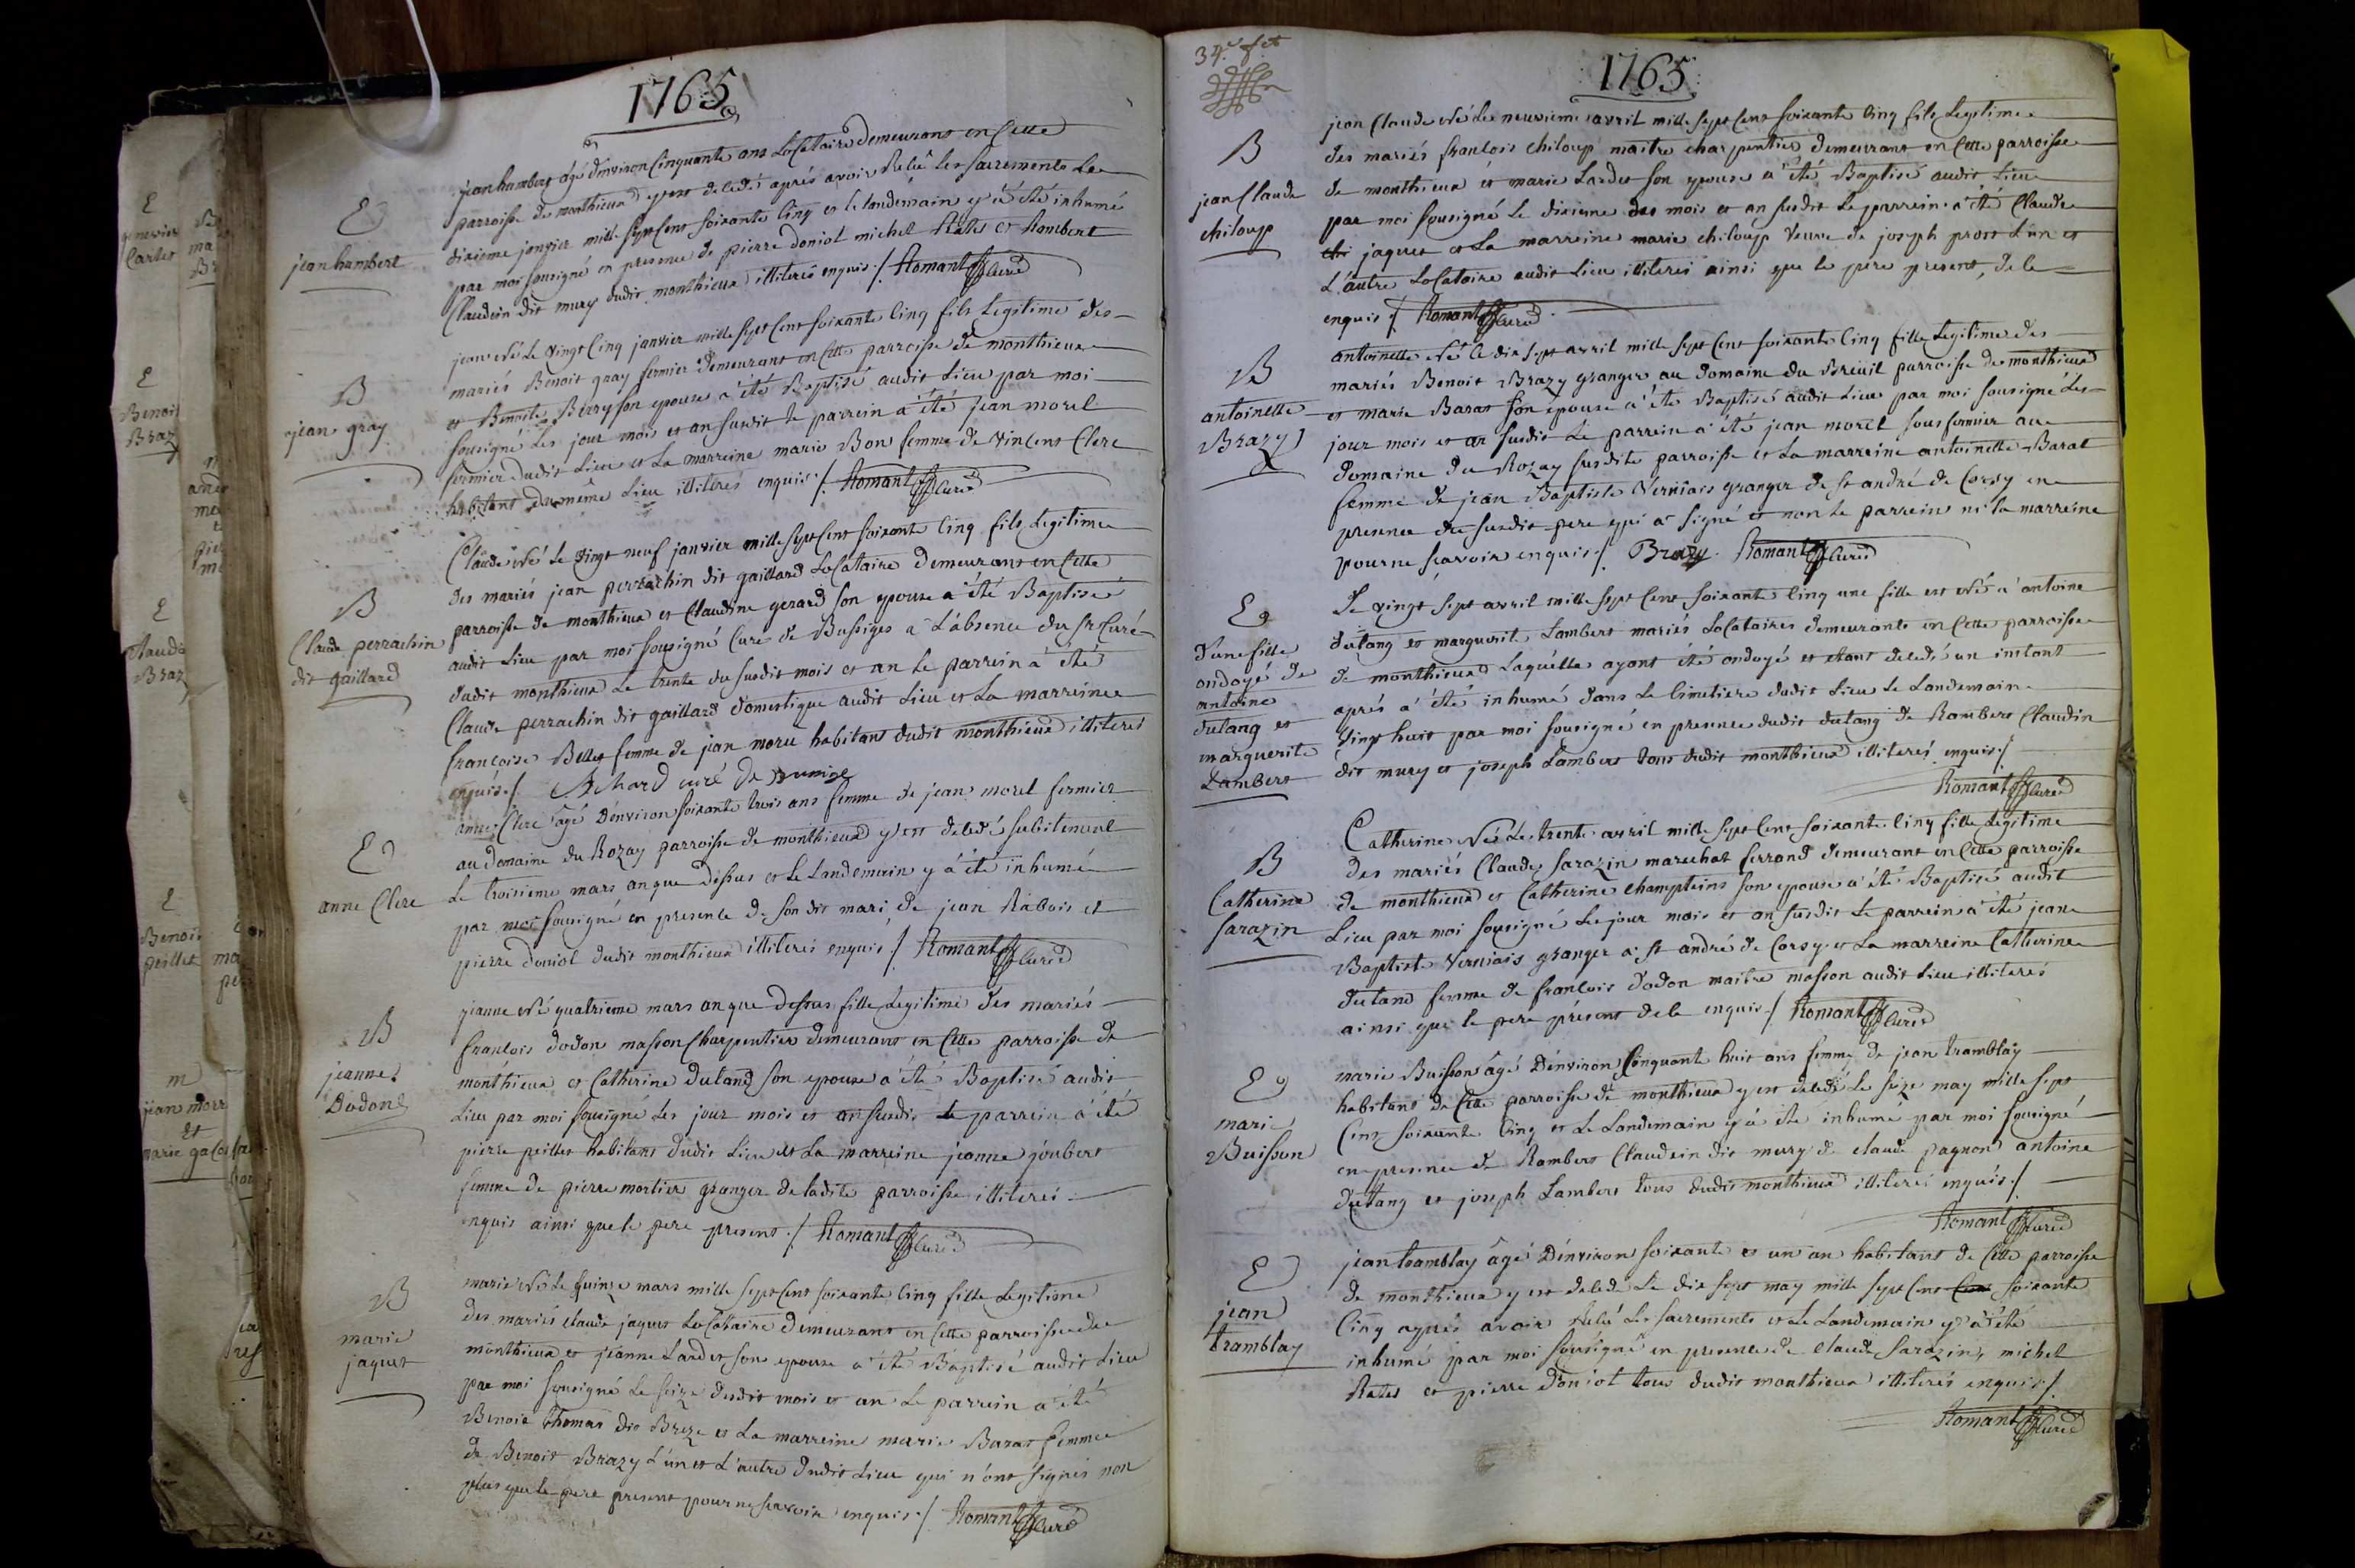 1765
E
jean humbert
jean humbert âgé d'environ Cinquante ans Locataire demeurant en Cette
parroisse de monthieux y est decedé aprés avoir Relu les sacrements Le
dixieme janvier mille sept Cent soixante Cinq et le landemain y a été inhumé
par moi sousigné en presence de pierre doniol michel Rates et Rombert
Claudein dit mury dudit monthieux illiterés enquis ./. Romant Curé
B
jean gray
jean Né Le vingt Cinq janvier mille sept Cent soixante Cinq fils Legitime des
mariés Benoit gray fermier demeurant en Cette parroisse de monthieux
et Benoite Berry son epouse a été Baptisé audit Lieu par moi
sousigné Les jour mois et an susdit le parrein a été jean morel
fermier dudit Lieu et La marreine marie Bon femme de vincent Clerc
habitant du même Lieu illiterés enquis ./. Romant Curé
B
Claude perrachin
dit gaillard
Claude Né Le vingt neuf janvier mille sept Cent soixante Cinq fils Legitime
des mariés jean perrachin dit gaillard Locataire demeurant en Cette
parroisse de monthieux et Claudine gerard son epouse a été Baptisé
audit Lieu par moi sousigné Curé de Bussiges a L'absence du sr Curé
dudit monthieux Le trente du susdit mois et an le parrein a été
Claude perrachin dit gaillard domestique audit Lieu et La marreine
francoise Bellet femme de jean moru habitant dudit monthieux illiterés
enquis ./. Achard curé de
E
anne Clerc
anne Clerc âgé d'environ soixante trois ans femme de jean morel fermier
au domaine du Rozay parroisse de monthieux y est decedé subitement
Le troisieme mars an que dessus et le Landemain y a été inhumé
par moi sousigné en presence de son dit mari, de jean Rabois et
pierre doniol dudit monthieux illiterés enquis ./. Romant Curé
B
jeanne
Dodon
jeanne Né quatrieme mars an que dessus fille Legitime des mariés
francois dodon masson Charpentier demeurant en Cette parroisse de
monthieux et Catherine Dutand son epouse a été Baptisé audit
Lieu par moi sousigné Les jour mois et an susdit le parrein a été
pierre peillet habitant dudit Lieu et La marreine jeanne joubert
femme de pierre mortier granger de ladite parroisse illiterés
enquis ainsi que le pere present ./. Romant Curé
B
marie
jaquet
marie Né Le quinze mars mille sept Cent soixante Cinq fille Legitime
des mariés claude jaquet Locataire demeurant en Cette parroisse de
monthieux et jeanne Lardet son epouse a été Baptisé audit Lieu
par moi sousigné Le seize dudit mois et an Le parrein a été
Benoit thomas dit Breze et La marreine marie Barat femme
de Benoit Brazy L'un et L'autre dudit Lieu qui n'ont signés non
plus que le pere present pour ne scavoir enquis ./. Romant Curé
34.e f.et
1765
B
jean Claude
chiloup
jean Claude Né Le neuvieme avril mille sept Cent soixante Cinq fils Legitime
des mariés francois chiloup maitre charpentier demeurant en Cette parroisse
de monthieux et marie Lardet son epouse a été Baptisé audit Lieu
par moi sousigné Le dixieme des mois et an susdit Le parrein a été Claude
chi jaquet et La marreine marie chiloup veuve de joseph prost L'un et
L'autre Locataire audit Lieu illiterés ainsi que le pere present, de ce
enquis ./. Romant Curé
B
antoinette
Brazy
antoinette Né Le dix sept avril mille sept Cent soixante Cinq fille Legitime des
mariés Benoit Brazy granger au domaine du Breuil parroisse de monthieux
et marie Barat son epouse a été Baptisé audit Lieu par moi sousigné Les
jour mois et an susdit Le parrein a été jean morel sousfermier au
domaine du Rozay susdite parroisse et La marreine antoinette Barat
femme de jean Baptiste Verniais granger de st andré de Corsy en
presence du susdit pere qui a signé et non le parrein ni la marreine
pour ne scavoir enquis ./. Brazy. Romant Curé
E
D'une fille
ondoyé de
antoine
dutang et
marguerite
Lambert
Le vingt sept avril mille sept Cent soixante Cinq une fille est Né a antoine
dutang et marguerite Lambert mariés Locataires demeurants en Cette parroisse
de monthieux Laquelle ayant été ondoyé et etant decedé un instant
aprés a été inhumé dans Le Cimetiere dudit Lieu Le Landemain
vingt huit par moi sousigné en presence dudit dutang de Rambert Claudin
dit mury et joseph Lambert tous dudit monthieux illiterés enquis ./.
Romant Curé
B
Catherine
Sarazin
Catherine Né Le trente avril mille sept Cent soixante Cinq fille Legitime
des mariés Claude sarazin marechal ferrand demeurant en Cette parroisse
de monthieux et Catherine champteins son epouse a été Baptisé audit
Lieu par moi sousigné Le jour mois et an susdit Le parrein a été jean
Baptiste Verniais granger a st andré de Corsy et La marreine Catherine
dutand femme de francois dodon maitre masson audit Lieu illiterés
ainsi que le pere présent de ce enquis ./. Romant Curé
E
marie
Buisson
marie Buisson âgé d'environ Cinquante huit ans femme de jean tramblay
habitant de Cette parroisse de monthieux y est decedé Le seize may mille sept
Cent soixante Cinq et Le Landemain y a été inhumé par moi sousigné
en presence de Rambert Claudein dit mury de claude pagnon antoine
dutang et joseph Lambert tous dudit monthieux illiterés enquis ./.
Romant Curé
E
jean
tramblay
jean tramblay âgé d'environ soixante et un an habitant de Cette parroisse
de monthieux y est decedé Le dix sept may mille sept Cent Cent soixante
Cinq aprés avoir Relu Les sacrements et Le Landemain y a été
inhumé par moi sousigné en presence de claude sarazin, michel
Rates et pierre doniol tous dudit monthieux illiterés enquis ./.
Romant Curé